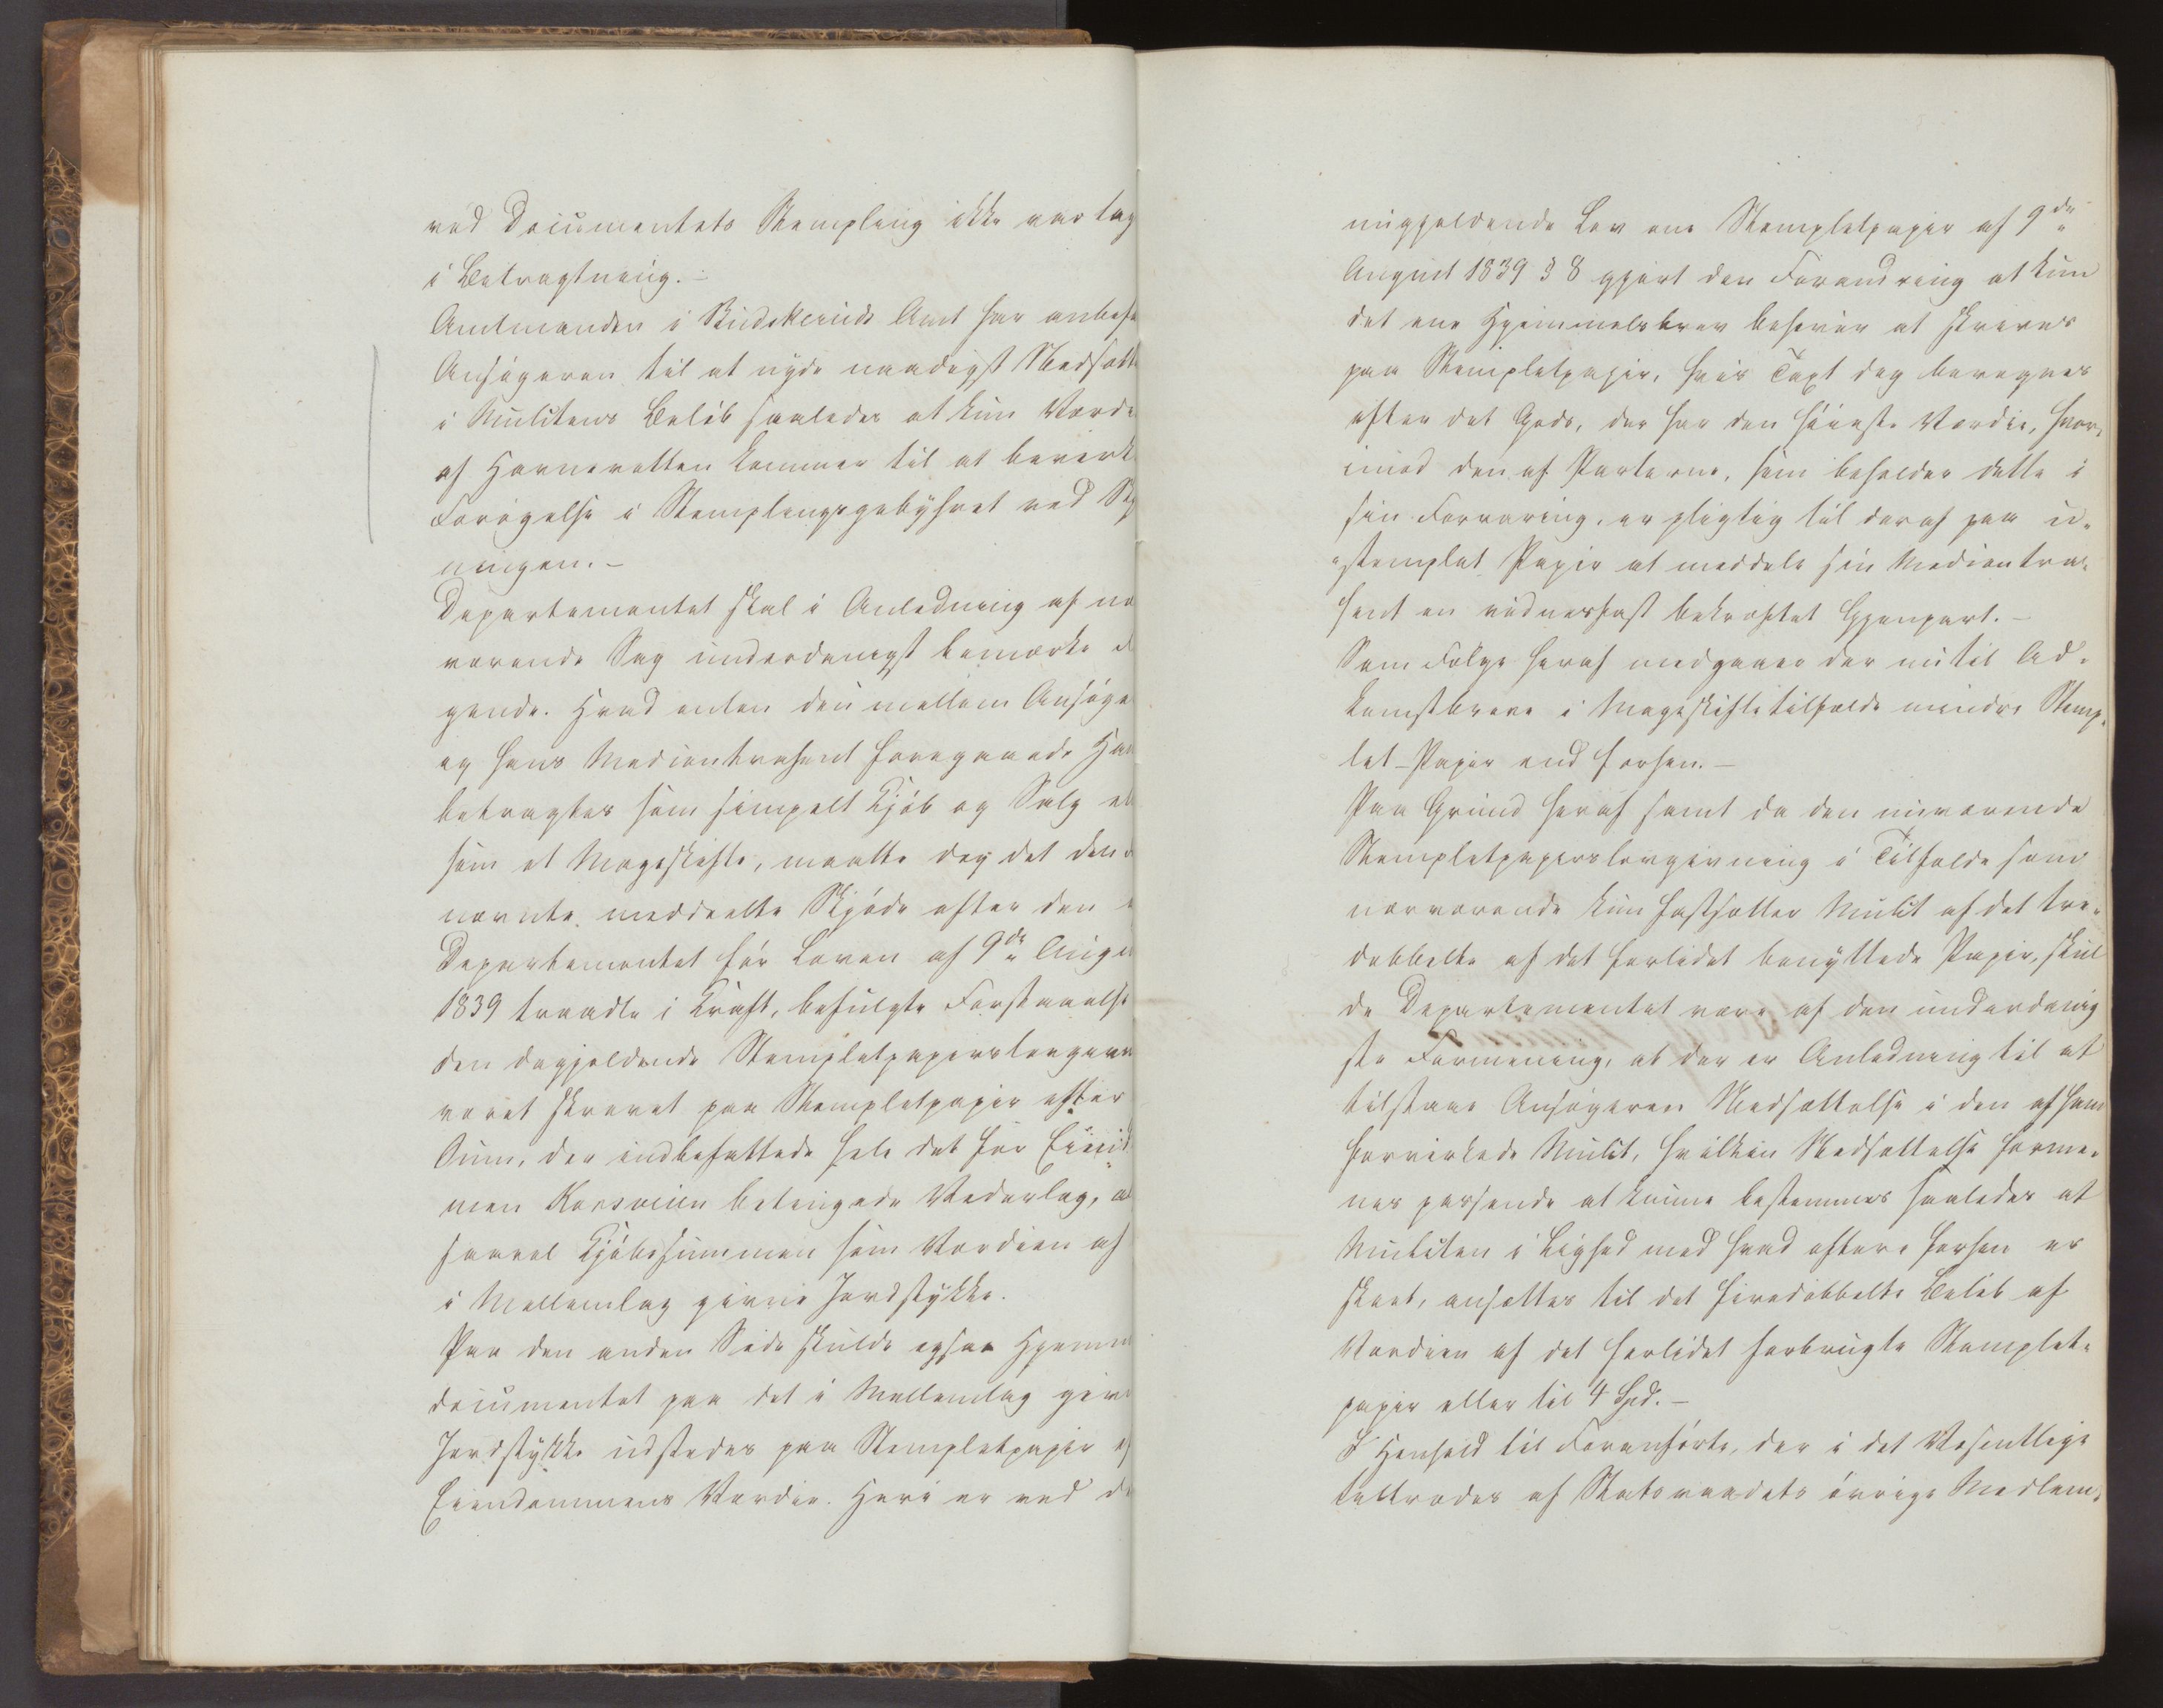 ved Documentets Stempling ikke var tag
i Betragtning.-
Amtmanden i Buskeruds Amt har anbefa
Ansøgeren til at nyde naadigst Nedsætt
i Mulctens Beløb saaledes at kun Værdi
af Havneretten kommer til at bevirke
Forøgelse i Stemplingsgebyhret ved
ningen.-
Departementet skal i Anledning af nær
værende Sag underdanigst bemærke
gende. Hvad enten den mellem Ansøge
og hans Medcontrahent foregaaede Han
betragtes som simpelt Kjøb og Salg ell
som et Mageskifte, maatte dog det den
nævnte meddeelte Skjøde efter den i
Departementet før Loven af 9de Augu
1839 traadte i Kraft, befulgte Forstaaelse
den dagjeldende Stempletpapirslovgivn
været skrevet paa Stempletpapir efter
Sum, der indbefattede hele det for Eiend
men Korsveien betingede Vederlag,
saavel Kjøbesummen som Værdien af
i Mellemlag givne Jordstykke.
Paa den anden Side skulde ogsaa Hjemm
documentet paa det i Mellemlag givn
Jordstykke udstedes paa Stempletpapir ef
Eiendommens Værdie. Heri er ved d
nugjeldende Lov om Stempletpapir af 9de
August 1839 § 8 gjort den Forandring at kun
det ene Hjemmelsbrev behøver at skrives
paa Stempletpapir, hvis Taxt dog beregnes
efter det Gods, der har den høieste Værdie, hvor-
imod den af Parterne, som beholder dette i
sin Forvaring, er pligtig til deraf paa u-
stemplet Papir at meddele sin Medcontra-
hent en vidnesfast bekræftet Gjenpart.-
Som Følge heraf medgaaer der nu til Ad-
komstbreve i Mageskiftetilfælde mindre Stemp-
let-Papir end forhen.-
Paa Grund heraf samt da den nuværende
Stempletpapirslovgivning i Tilfælde som
nærværende kun fastsætter Mulct af det tre-
dobbelte af det forlidet benyttede Papir, skul
de Departementet være af den underdanig
ste Formening, at der er Anledning til at
tilstaae Ansøgeren Nedsættelse i den af ham
forvirkede Mulct, hvilken Nedsættelse forme-
nes passende at kunne bestemmes saaledes at
Mulcten i Lighed med hvad oftere forhen er
skeet, ansættes til det firedobbelte Beløb af
Værdien af det forlidet forbrugte Stemplet-
papir eller til 4 Spd.-
I Henhold til Foranførte, der i det Væsentlige
tiltrædes af Statsraadets øvrige Medlem-